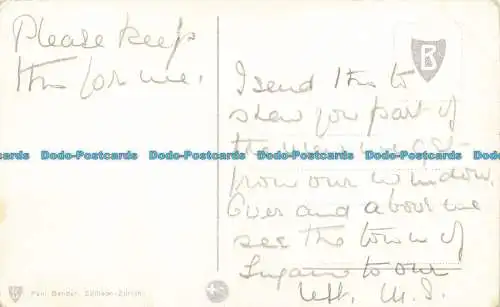 Please keep
this for me.
B
I send this to
show you part of
the view we get
from our window.
Over and above we
see the town of
Lugano to our
left. M. J.
Dodo-Postcards Dodo-Postcards Dodo-Postcards Dodo-Postcards
Paul Bender, Zollikon-Zürich.